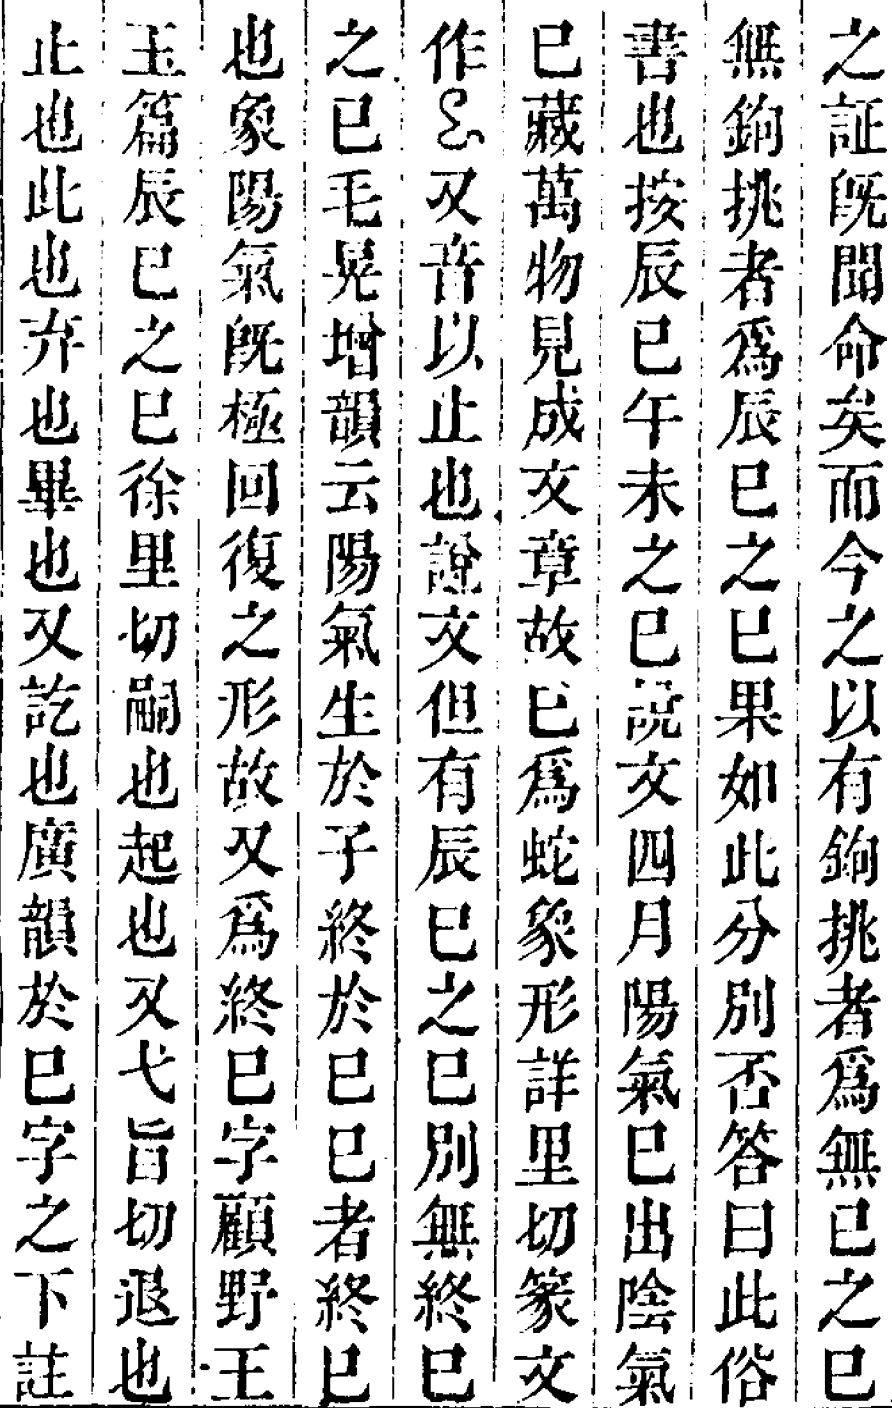 之証既聞命矣而今之以有鉤挑者爲無已之巳
無鉤挑者爲辰巳之巳果如此分別否答曰此俗
書也按辰巳午未之巳說文四月陽氣巳出陰氣
巳藏萬物見成文章故巳爲蛇象形詳里切篆文
作又音以止也說文但有辰巳之巳別無終巳
之巳毛晃增韻云陽氣生於子終於巳巳者終巳
也象陽氣既極回復之形故又爲終巳字顧野王
玉篇辰巳之巳徐里切嗣也起也又弋旨切退也
止也此也弃也畢也又訖也廣韻於巳字之下註